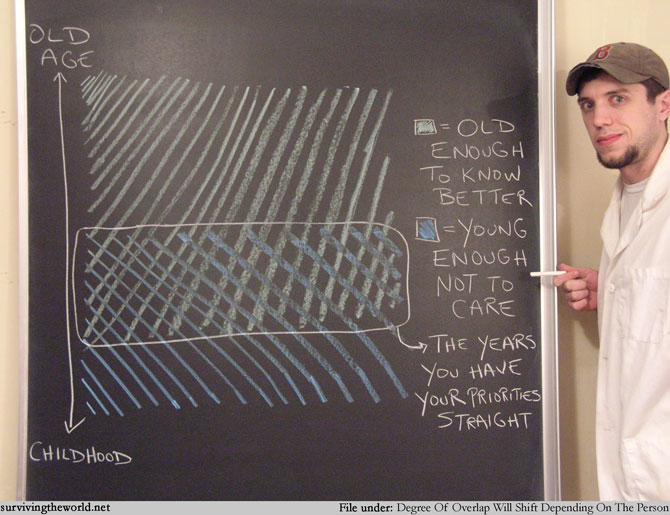 OLD
AGE
= OLD
ENOUGH
TO KNOW
BETTER
= YOUNG
ENOUGH
NOT TO
CARE
THE YEARS
YOU HAVE
YOUR PRIORITIES
STRAIGHT
CHILDHOOD
B
survivingtheworld.net
File under: Degree Of Overlap Will Shift Depending On The Person